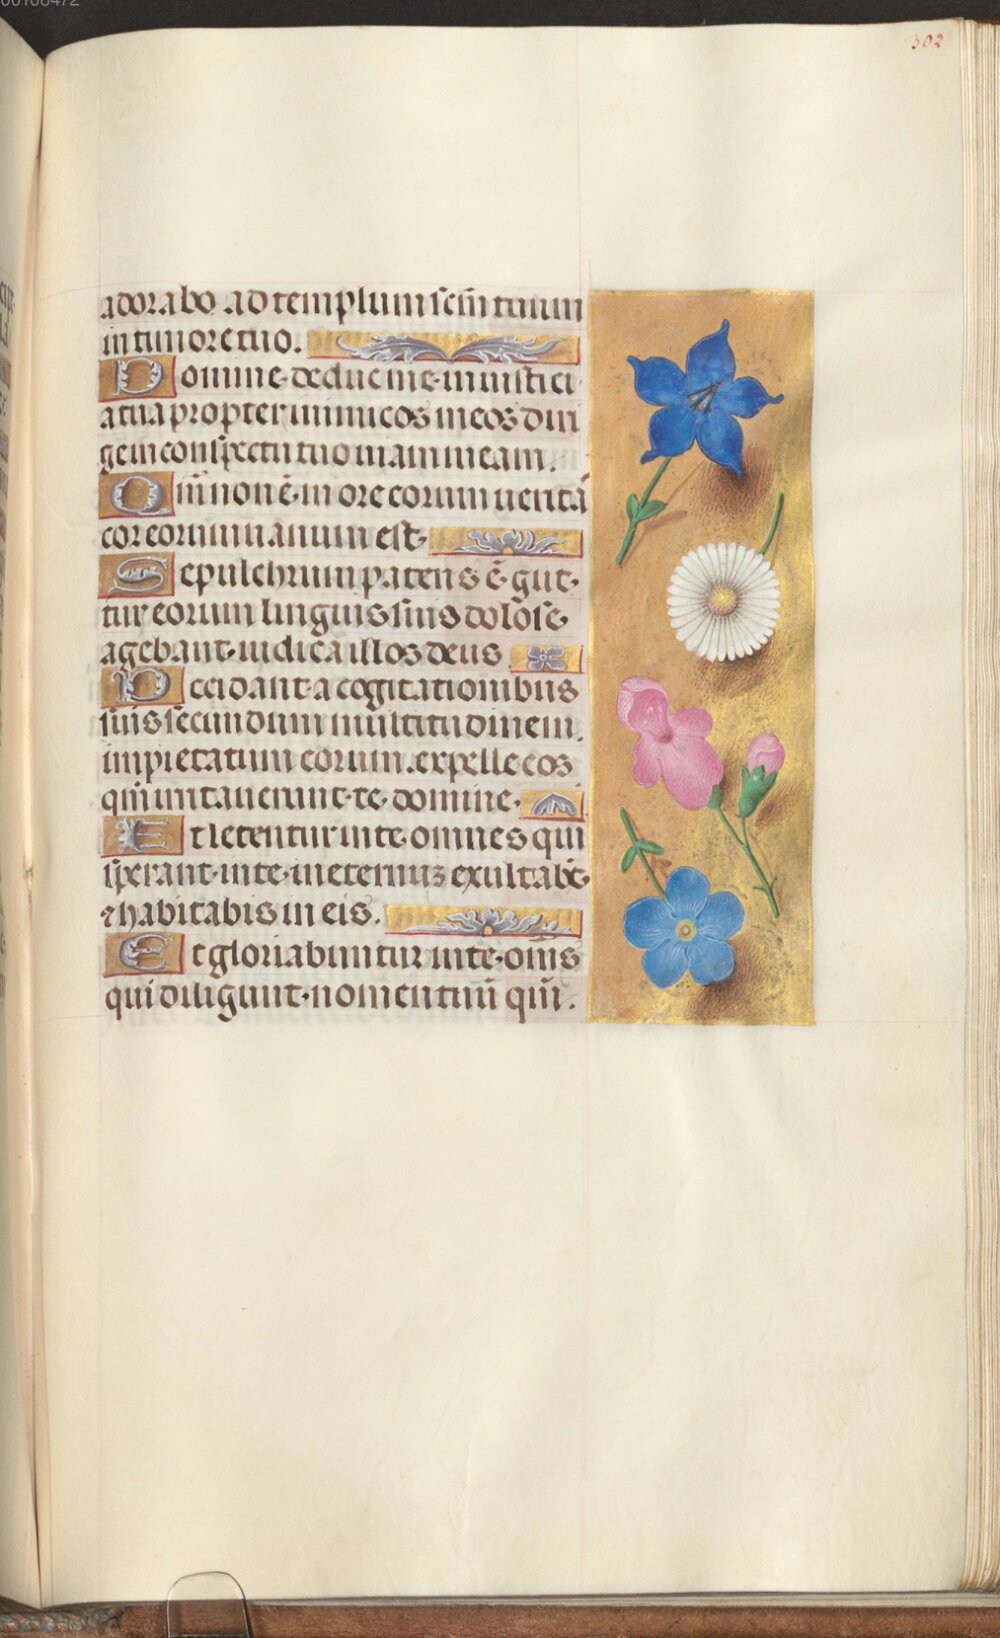 00108472
302
adorabo ad templum scm̄ tuum
in timore tuo.
Domine deduc me in iustici
a tua propter inimicos meos diri
ge in conspectu tuo uiam meam.
Qm̄ non ē in ore eorum uerita
cor eorum uanum est
Sepulchrum patens ē gut
tur eorum linguis suis dolose
agebant iudica illos deus
Decidant a cogitationibus
suis secundum multitudinem
impietatum eorum. expelle eos
qm̄ irritauerunt te domine.
Et letentur in te omnes qui
sperant in te in eternuz exultabt̄
⁊ habitabis in eis.
Et gloriabuntur in te om̄s
qui diligunt nomen tuū qm̄.